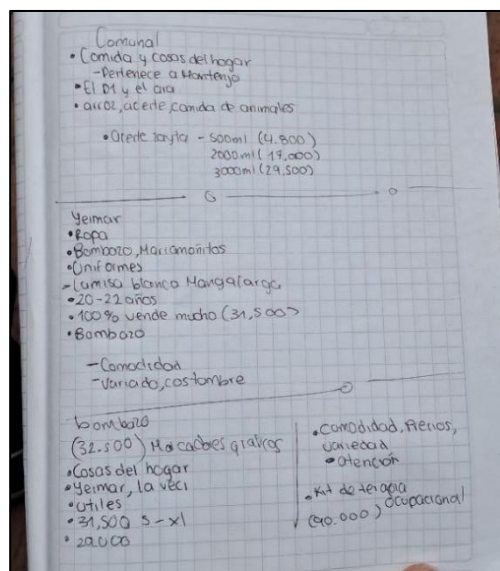 Comunal
• Comida y cosas del hogar
- Pertenece a Mantenjo
• El D1 y el ara
• arroz, aceite, comida de animales
• aceite - 500ml (4.800)
2000ml (17.000)
3000ml (29.500)
Yeimar
• Ropa
• Bombazo, Mariamoñitos
• Uniformes
- Camisa blanca Manga larga
• 20-22 años
• 100% vende mucho (31,500)
• Bombazo
- Comodidad
- Variado, costombre
bombazo
(32.500) graficos
• Cosas del hogar
• Yeimar, la veci
• utiles
• 31,500 S-xl
• 29.000
• comodidad, Precios,
variedad
• atención
• Kit de terapia
ocupacional
(90.000)